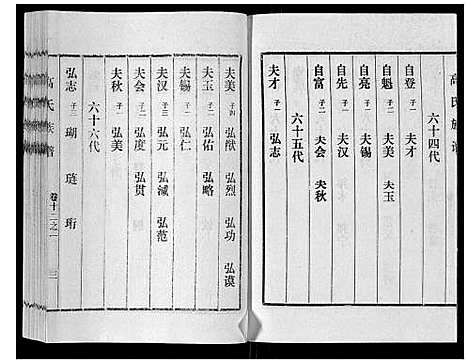 高氏族谱
六十四代
自登 子一 夫才
自魁 子二 夫美 夫玉
自亮 子一 夫锡
自先 子一 夫汉
自富 子二 夫会 夫秋
六十五代
夫才 子一 弘志
夫美 子四 弘猷 弘烈 弘功 弘谟
夫玉 子二 弘佑 弘略
夫锡 子一 弘仁
夫汉 子三 弘元 弘诚 弘范
夫会 子二 弘度 弘贯
夫秋 子一 弘美
六十六代
弘志 子三 瑚 琏 珩
高氏族谱 卷十三之一 三